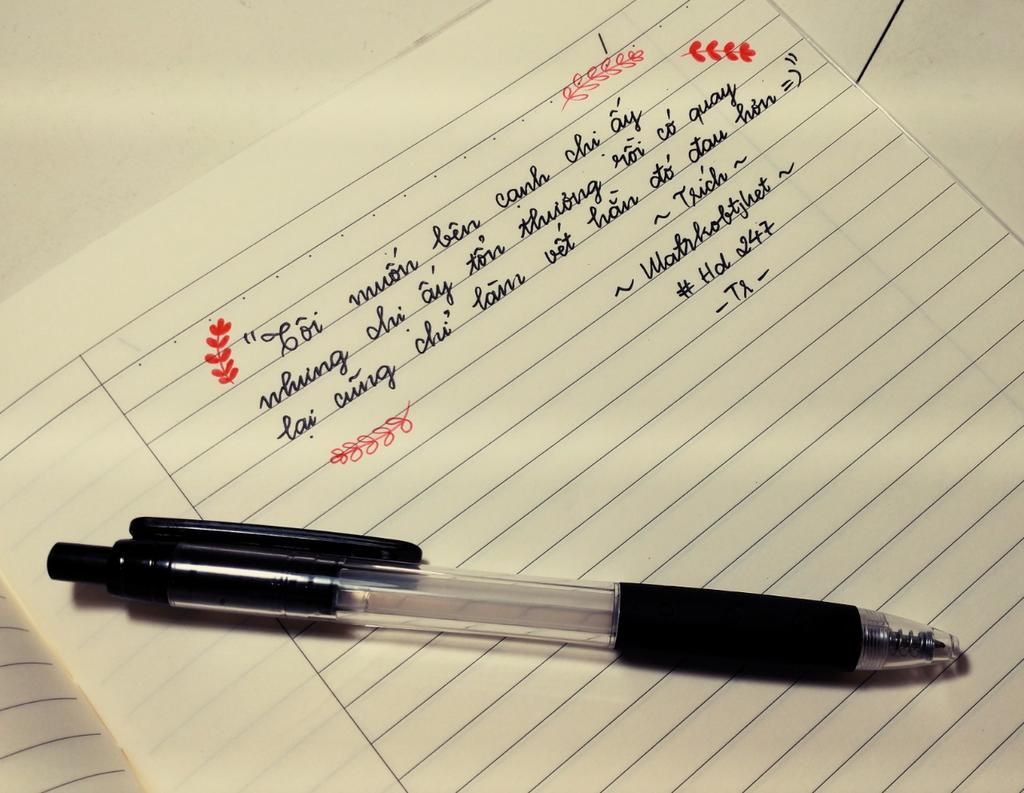 "Tôi muốn bên cạnh chị ấy
nhưng chị ấy tổn thương rồi có quay
lại cũng chỉ làm vết hằn đó đau hơn =)"
~ Trích ~
~ Matrkobtjhet ~
# Hd 247
- Tr -